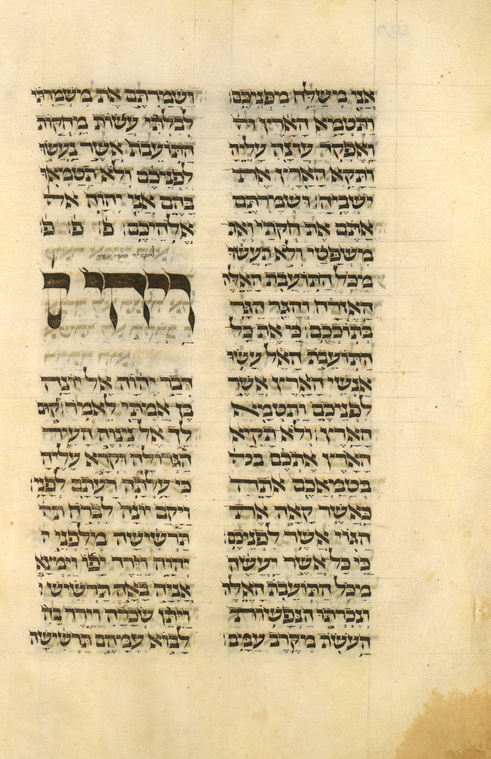 אני משלח מפניכם
ותטמא הארץ
ואפקד עונה עליה
ותקא הארץ את
ישביה ושמרתם
אתם את חקתי ואת
משפטי ולא תעשו
מכל התועבת האלה
האזרח והגר הגר
בתוככם כי את כל
התועבת האל עשו
אנשי הארץ אשר
לפניכם ותטמא
הארץ ולא תקיא
הארץ אתכם
בטמאכם אתה
כאשר קאה את
הגוי אשר לפניכם
כי כל אשר יעשה
מכל התועבת האלה
ונכרתו הנפשות
העשת מקרב עמם
ושמרתם את משמרתי
לבלתי עשות מחקות
התועבת אשר נעשו
לפניכם ולא תטמאו
בהם אני יהוה
אלהיכם פ פ פ
ויהי
דבר יהוה אל יונה
בן אמתי לאמר קום
לך אל נינוה העיר
הגדולה וקרא עליה
כי עלתה רעתם לפני
ויקם יונה לברח
תרשישה מלפני
יהוה וירד יפו וימצא
אניה באה תרשיש
ויתן שכרה וירד בה
לבוא עמהם תרשישה